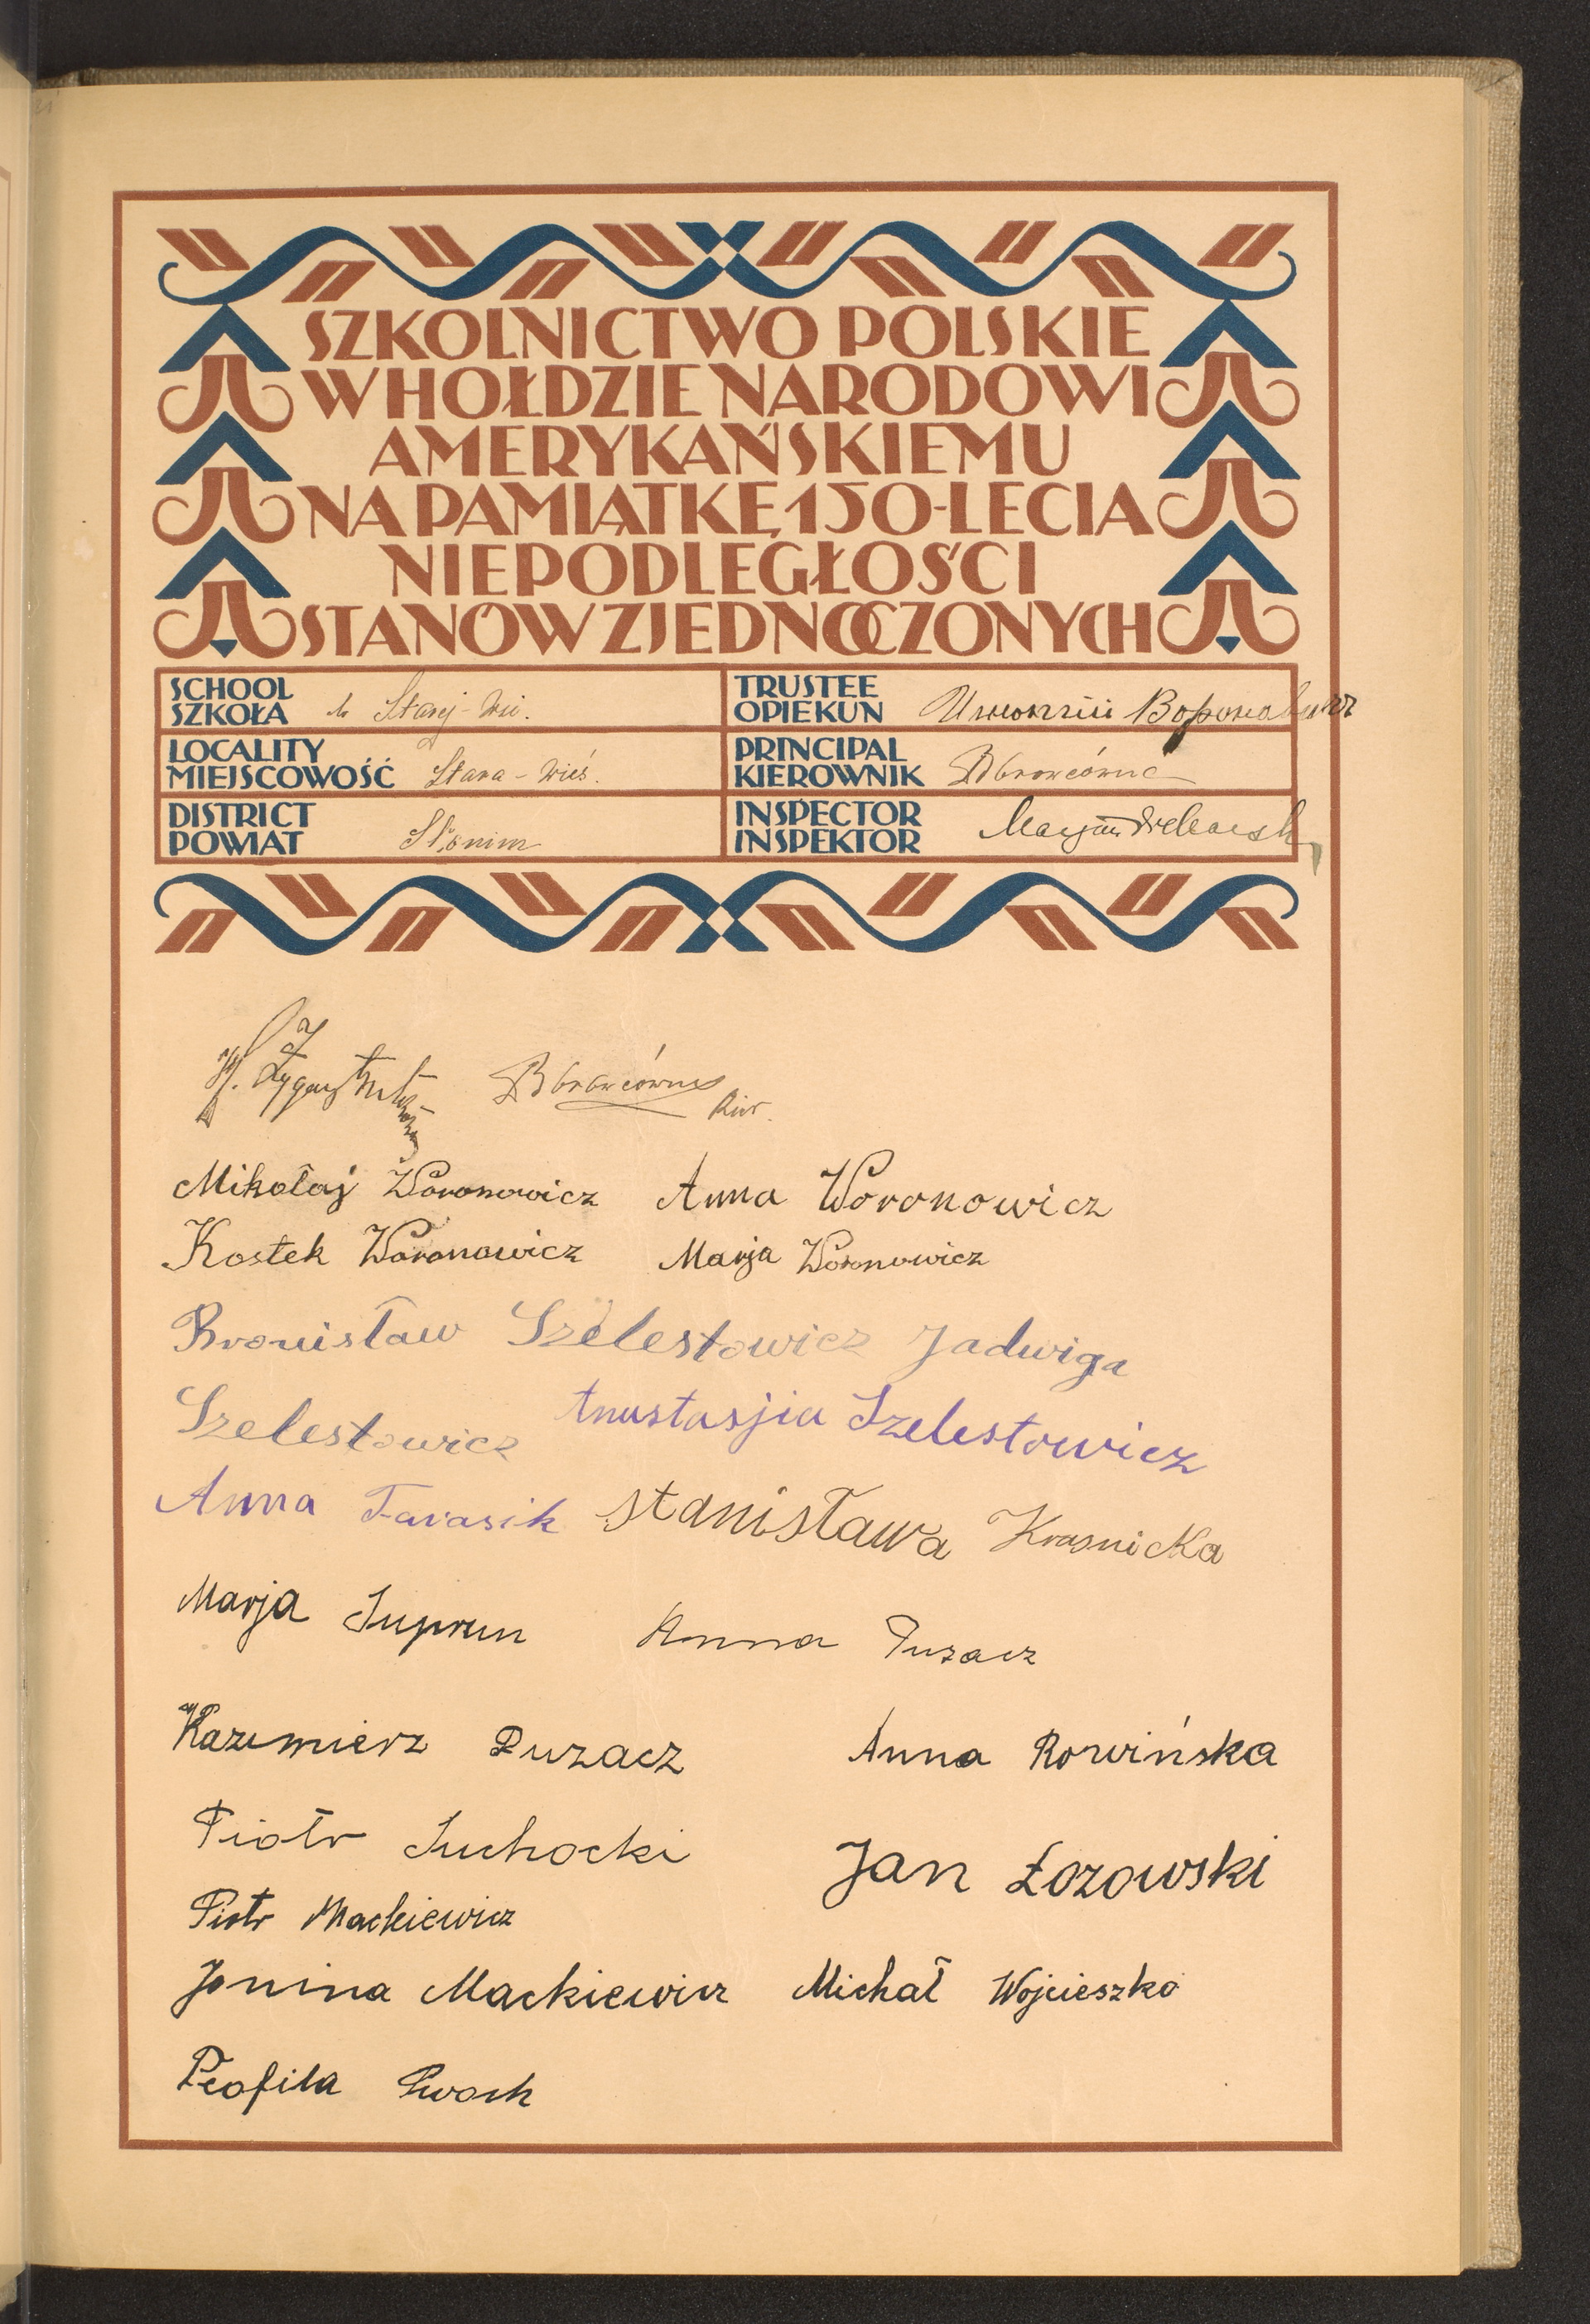 SZKOLNICTWO POLSKIE
W HOŁDZIE NARODOWI
AMERYKAŃSKIEMU
NA PAMIĄTKĘ 150-LECIA
NIEPODLEGŁOŚCI
STANÓW ZJEDNOCZONYCH
SCHOOL
SZKOŁA w Starej-Wsi.
TRUSTEE
OPIEKUN
LOCALITY
MIEJSCOWOŚĆ Stara-Wieś.
PRINCIPAL
KIEROWNIK
DISTRICT
POWIAT Słonim
INSPECTOR
INSPEKTOR Marjan
Mikołaj Woronowicz Anna Woronowicz
Kostek Woronowicz Marja Woronowicz
Bronisław Szelestowicz Jadwiga
Szelestowicz Anustasjia Szelestowicz
Anna Tarasik Stanisława Krasnicka
Marja Suprun Anna Puzacz
Kazimierz Puzacz Anna Rowińska
Piotr Suchocki Jan Łozowski
Piotr Mackiewicz
Janina Mackiewicz Michał Wojcieszko
Teofila